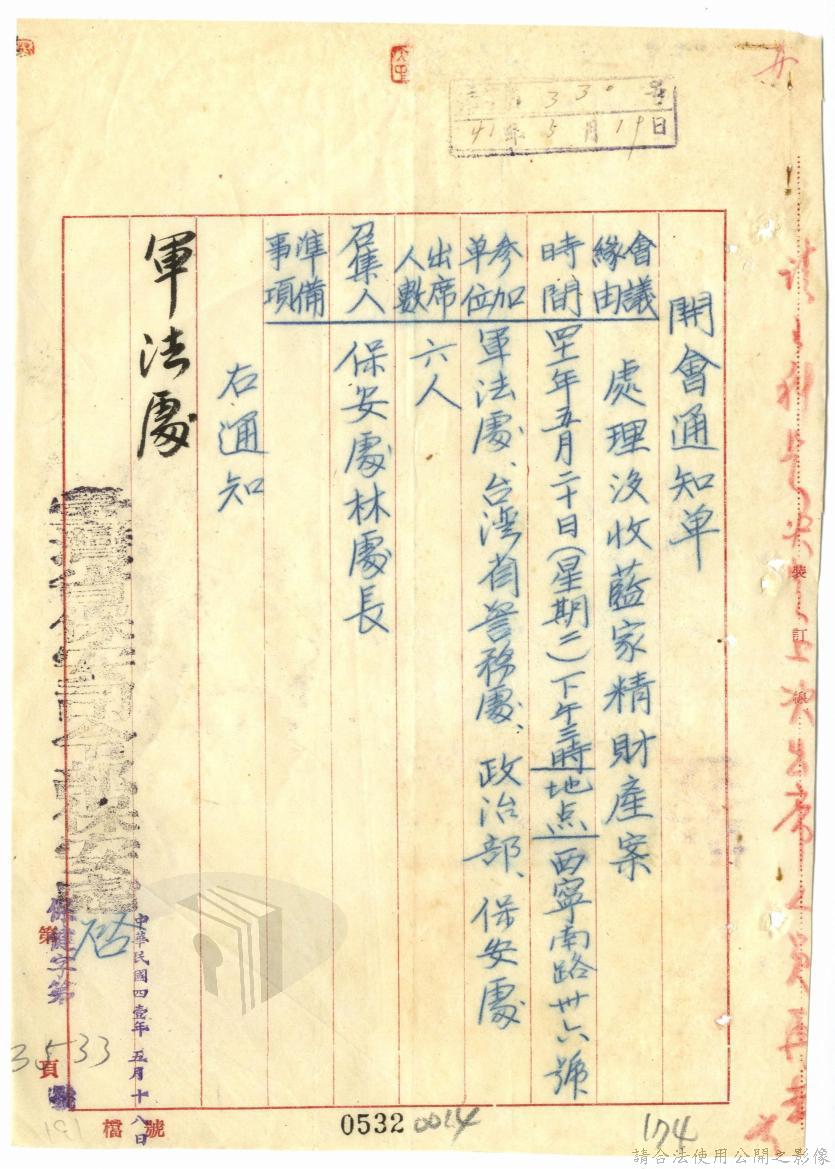 330號
41年5月19日
開會通知单
會議緣由 處理沒收藍家精財產案
時間 四十一年五月二十日(星期二)下午三時地点西寧南路卅六號
參加單位 軍法處、台湾省警務處、政治部、保安處
出席人數 六人
召集人 保安處林處長
準備事項
右通知
軍法處
台灣省保安司令部保安處
啓
中華民國四壹年五月十八日
保 字第 3533 號
第 頁
裝訂線
出席人員
檔號
191
0532
0014
174
請合法使用公開之影像